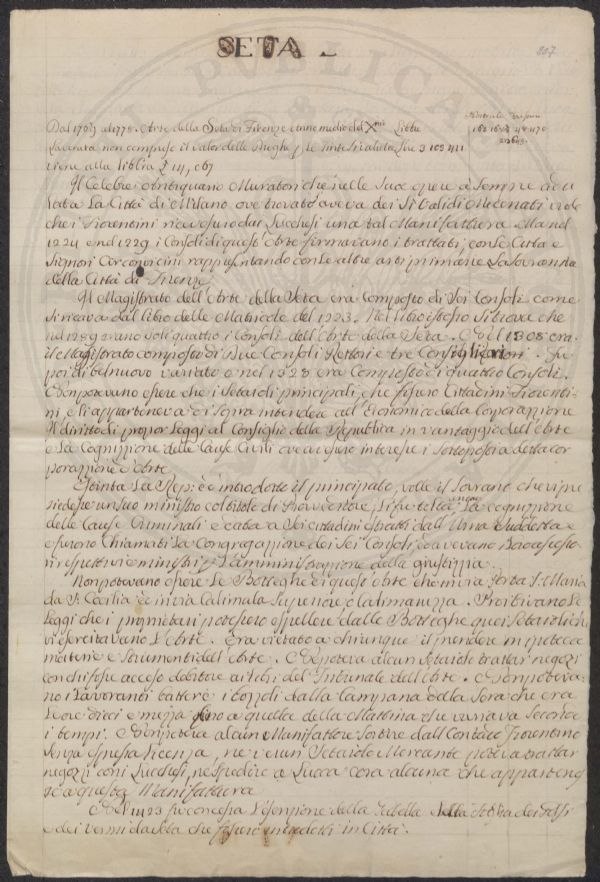 SETA
207
Dal 1769 al 1778. Arte della Seta di Firenze anno medio del Xnio Libbre
Lavorata non compreso il valor delle Pieghe
viene alla libbra £ 14, 067
Il Celebre Antiquario Muratori che nelle sue opere à sempre
la Città di Milano ove trovato aveva dei Mecenati vuole
che i Fiorentini ricevessero dai Lucchesi una tal Manifattura. Ma nel
1224 e nel 1229 i Consoli di quest' Arte firmavano i trattati con le Città e
Signori Circonvicini rappresentando con le altre arti primarie la Sovranità
della Città di Firenze
Il Magistrato dell' Arte della Seta era Composto di Sei Consoli come
si ricava dal libro delle Matricole del 1223. Nel libro istesso si trova che
nel 1289 erano soli quattro i Consoli dell' Arte della Seta. E del 1308 era
il Magistrato composto di Due Consoli Rettori e tre Consiglieri. Fu
poi di bel nuovo variato e nel 1328 era Composto di quattro Consoli.
E non potevano essere che i Setaioli principali, che fossero Cittadini Fiorenti-
ni, e li apparteneva di soprintendere all' Economico della Corporazione
Il diritto di propor leggi al Consiglio della Repubblica in vantaggio dell' Arte
e la Cognizione delle Cause Civili ove avessero interesse i Sottoposti a detta Cor
porazione d' Arte.
Estinta la Rep: ed introdotto il principato, volle il Sovrano che vi pre
siedesse un suo ministro col titolo di Provveditore, li fu tolta ancora la cognizione
delle Cause Criminali e data a Sei cittadini estratti dall' Urna Suddetta e
e furono Chiamati la Congregazione dei Sei Consoli, ed avevano
i respettivi ministri p l'amministrazione della giustizia.
Non potevano essere le Botteghe di quest' Arte che in via Porta S. Maria
da S. Cecilia ed in via Calimala Superiore e Calimaruzza. Proibivano le
leggi che i proprietari potessero espellere dalle Botteghe quei Setaioli che
vi esercitavano l' Arte. Era vietato a chiunque il prendere in ipoteca
materie e Strumenti dell' Arte. Né poteva alcun Setaiolo trattar negozi
con chi fosse acceso debitore ai libri del Tribunale dell' Arte. E non poteva-
no i Lavoranti battere i bozzoli dalla Campana della Sera che era
le ore dieci e mezza sino a quella della Mattina che variava secondo
i tempi. E non poteva alcun Manifattore sortire dall Contado Fiorentino
senza espressa licenza, né verun Setaiolo Mercante poteva trattar
negozi coni Lucchesi, né spedire a Lucca cosa alcuna che apparten-
esse a questa Manifattura
E del 1423 fu concessa l' esenzione della Gabella della foglia dei Gelsi
e dei vermi da seta che fossero introdotti in Città.